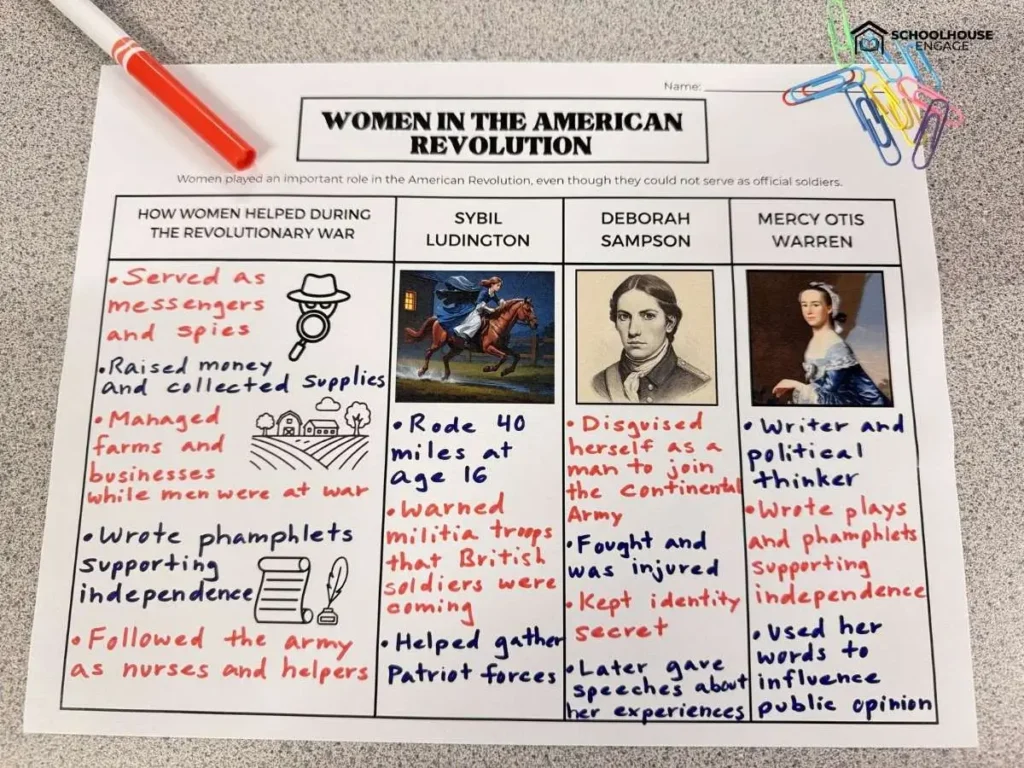 SCHOOLHOUSE
ENGAGE
Name:
WOMEN IN THE AMERICAN
REVOLUTION
Women played an important role in the American Revolution, even though they could not serve as official soldiers.
HOW WOMEN HELPED DURING
THE REVOLUTIONARY WAR
• Served as
messengers
and spies
• Raised money
and collected supplies
• Managed
farms and
businesses
while men were at war
• Wrote phamphlets
supporting
independence
• Followed the army
as nurses and helpers
SYBIL
LUDINGTON
• Rode 40
miles at
age 16
• Warned
militia troops
that British
soldiers were
coming
• Helped gather
Patriot forces
DEBORAH
SAMPSON
• Disguised
herself as a
man to join
the continental
Army
• Fought and
was injured
• Kept identity
secret
• Later gave
speeches about
her experiences
MERCY OTIS
WARREN
• Writer and
political
thinker
• Wrote plays
and phamphlets
supporting
independence
• Used her
words to
influence
public opinion